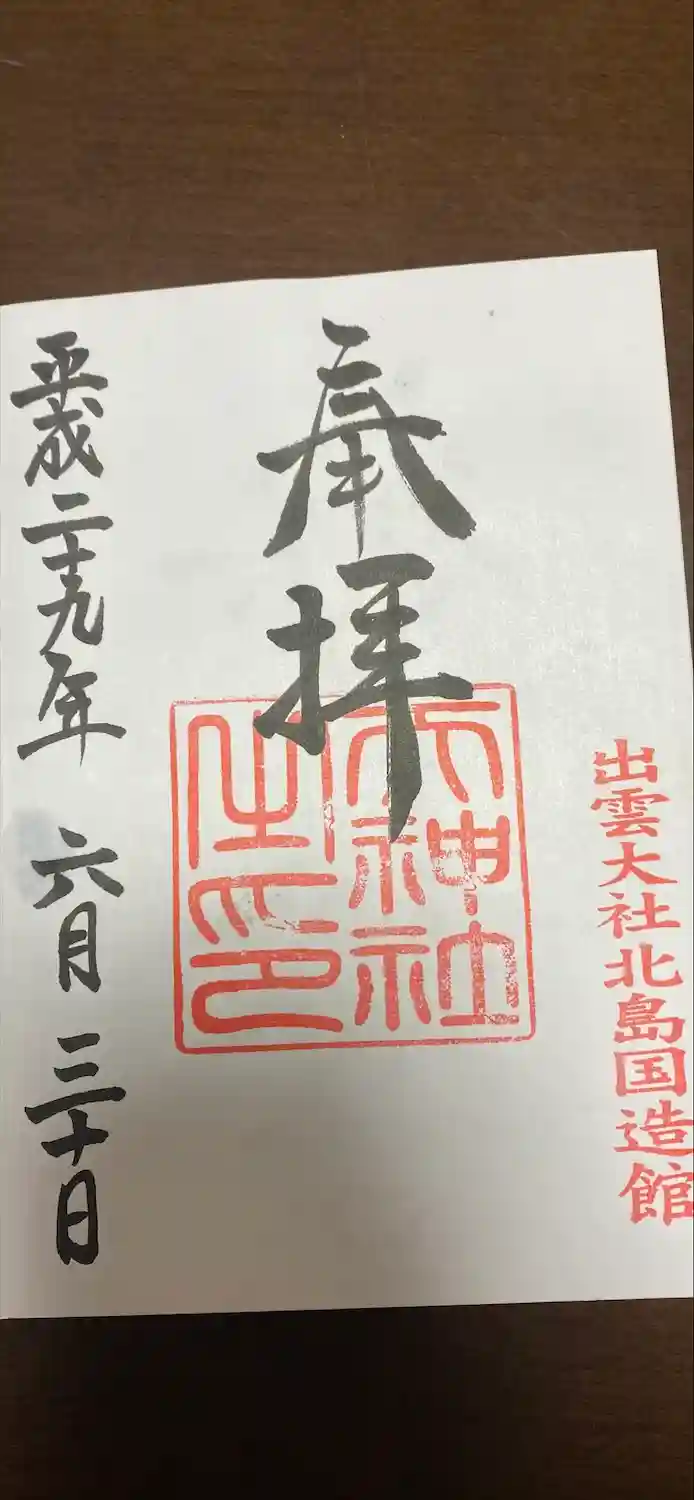 出雲大社北島国造館
奉拝
天神社
之印
平成二十九年 六月 三十日